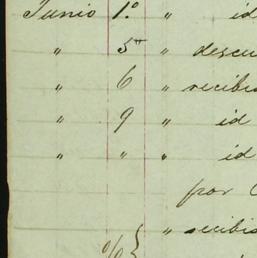 Junio 1.º " id
" 5 " descu
" 6 " recibi
" 9 " id
" " " id
por
" recibi